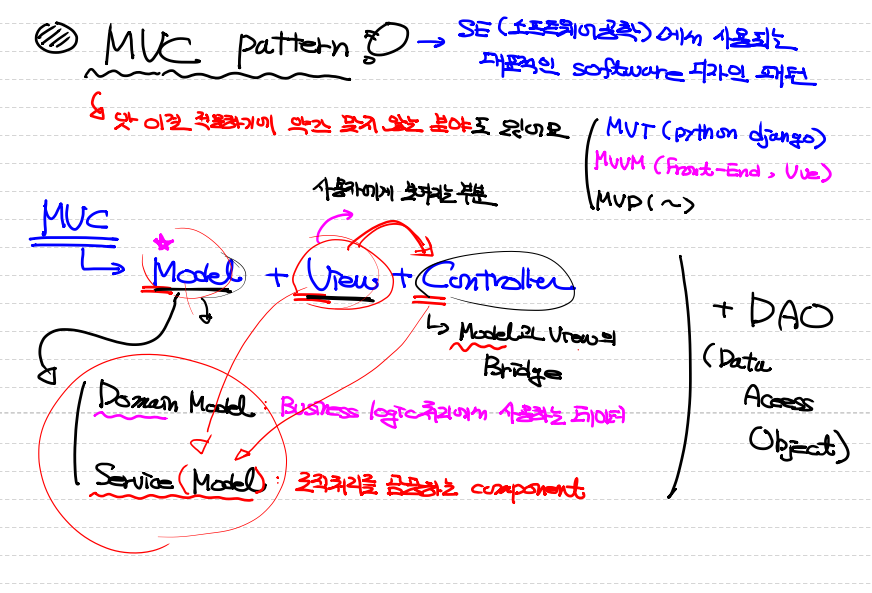 MVC pattern → SE (소프트웨어공학)에서 사용되는
대표적인 software 디자인 패턴
이걸 적용하기에 맞지 않는 분야도 있어요
MVT (python django)
MVVM (Front-End, Vue)
MVP (~)
사용자에게 보여지는 부분
MVC
Model + View + Controller
Model과 View의
Bridge
+ DAO
(Data
Access
Object)
Domain Model : Business logic처리에서 사용하는 데이터
Service (Model) : 로직처리를 담당하는 component